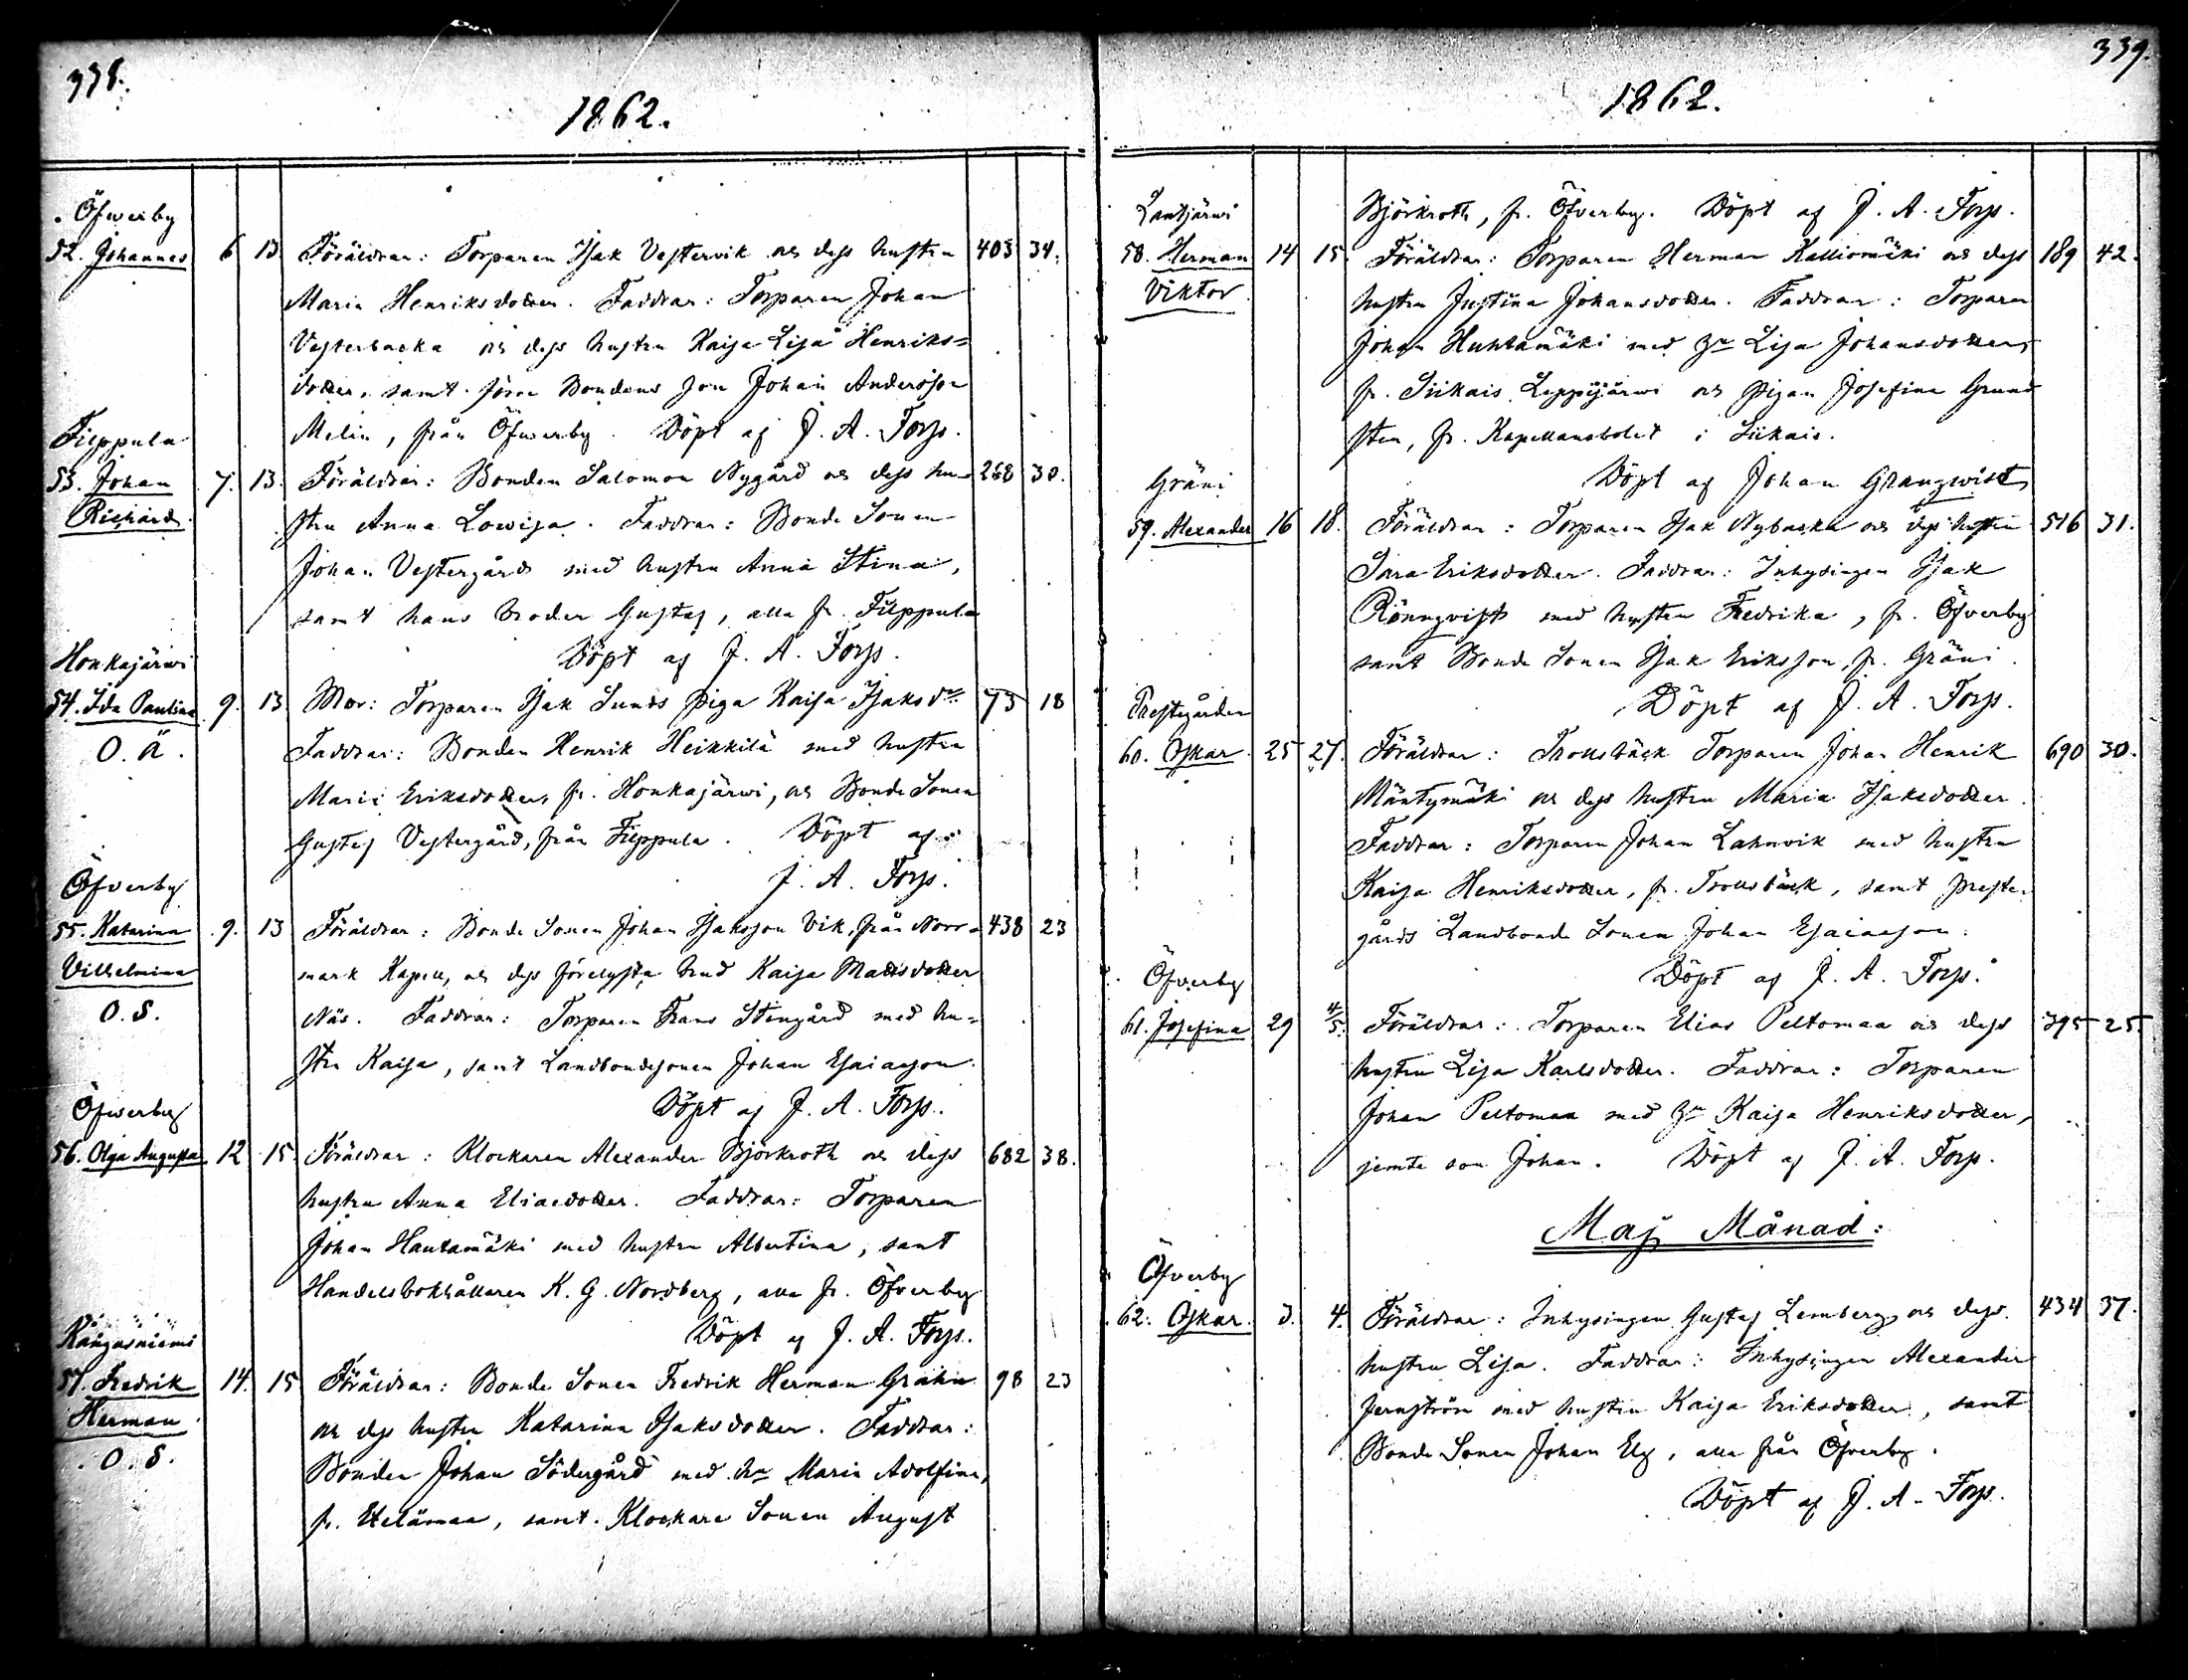 338.
1862.
Öfwerby
52. Johannes 6 13 Föräldrar: Torparen Isak Vestervik och dess hustru 403 34.
Maria Henriksdotter. Faddrar: Torparen Johan
Vesterbacka och dess hustru Kaisa Lisa Henriks=
dotter, samt förre Bondens son Johan Andersson
Melin, från Öfwerby. Döpt af J. A. Forss.
Filppula
53. Johan 7. 13. Föräldrar: Bonden Salomon Nygård och dess hu- 268 30.
Richard.
stru Anna Lowisa. Faddrar: Bonde Sonen
Johan Vestergård med hustru Anna Stina,
samt hans broder Gustaf, alla fr. Filppula
Döpt af J. A. Forss.
Honkajärwi
54. Ida Paulina 9. 13 Mor: Torparen Isak Sunds Piga Kaisa Isaksdr 73 18
O. Ä.
Faddrar: Bonden Henrik Heikkilä med hustru
Maria Eriksdotter, fr. Honkajärwi, och Bonde Sonen
Gustaf Vestergård, från Filppula. Döpt af:
J. A. Forss.
Öfverby
55. Katarina 9. 13 Föräldrar: Bonde Sonen Johan Isaksson Vik, från Norr= 438 23
Vilhelmina
mark Kapell, och dess förelysta brud Kaisa Mattsdotter
O. S.
Näs. Faddrar: Torparen Frans Stengård med hu=
stru Kaisa, samt Landbondesonen Johan Esaiasson.
Döpt af J. A. Forss.
Öfwerby
56. Olga Augusta 12 15 Föräldrar: Klockaren Alexander Björkroth och dess 682 38.
hustru Anna Eliaedotter. Faddrar: Torparen
Johan Hautamäki med hustru Albertina, samt
Handelsbokhållaren K. G. Nordberg, alla fr. Öfverby
Döpt af J. A. Forss.
Kangasniemi
57. Fredrik 14. 15 Föräldrar: Bonde Sonen Fredrik Herman Grahn 98 23
Herman
och dess hustru Katarina Isaksdotter. Faddrar:
O. S.
Bonden Johan Södergård med hu Maria Adolfina,
fr. Etelämaa, samt Klockare Sonen August
339.
1862.
Björkroth, fr. Öfverby. Döpt af J. A. Forss.
Lantjärwi
58. Herman 14 15 Föräldrar: Torparen Herman Kalliomäki och dess 189 42.
Viktor
hustru Justina Johansdotter. Faddrar: Torparen
Johan Huhtamäki med hu Lisa Johansdotter,
fr. Siikais Leppijärwi och Pigan Josefina Grund
sten, fr. Kapellansbolet i Siikais.
Döpt af Johan Granqwist
Gräni
59. Alexander 16 18. Föräldrar: Torparen Isak Nybacka och dess hustru 516 31.
Sara Eriksdotter. Faddrar: Inhysingen Isak
Rönnqvist med hustru Fredrika, fr. Öfverby
samt Bonde Sonen Isak Eriksson, fr. Gräni.
Döpt af J. A. Forss.
Prestgården
60. Oskar 25 27. Föräldrar: Trollsbäck Torparen Johan Henrik 690 30.
Mäntymäki och dess hustru Maria Isaksdotter.
Faddrar: Torparen Johan Lahnvik med hustru
Kaisa Henriksdotter, fr. Trollsbäck, samt Preste-
gårds Landbonde Sonen Johan Esaiasson.
Döpt af J. A. Forss.
Öfverby
61. Josefina 29 4/5. Föräldrar: Torparen Elias Peltomaa och dess 395 25.
hustru Lisa Karlsdotter. Faddrar: Torparen
Johan Peltomaa med hu Kaisa Henriksdotter,
jemte son Johan. Döpt af J. A. Forss.
Maj Månad:
Öfverby
62. Oskar. 3. 4. Föräldrar: Inhysingen Gustaf Lemberg och dess 434 37.
hustru Lisa. Faddrar: Inhysingen Alexander
Jernström med hustru Kaisa Eriksdotter, samt
Bonde Sonen Johan Elg, alla från Öfverby.
Döpt af J. A. Forss.